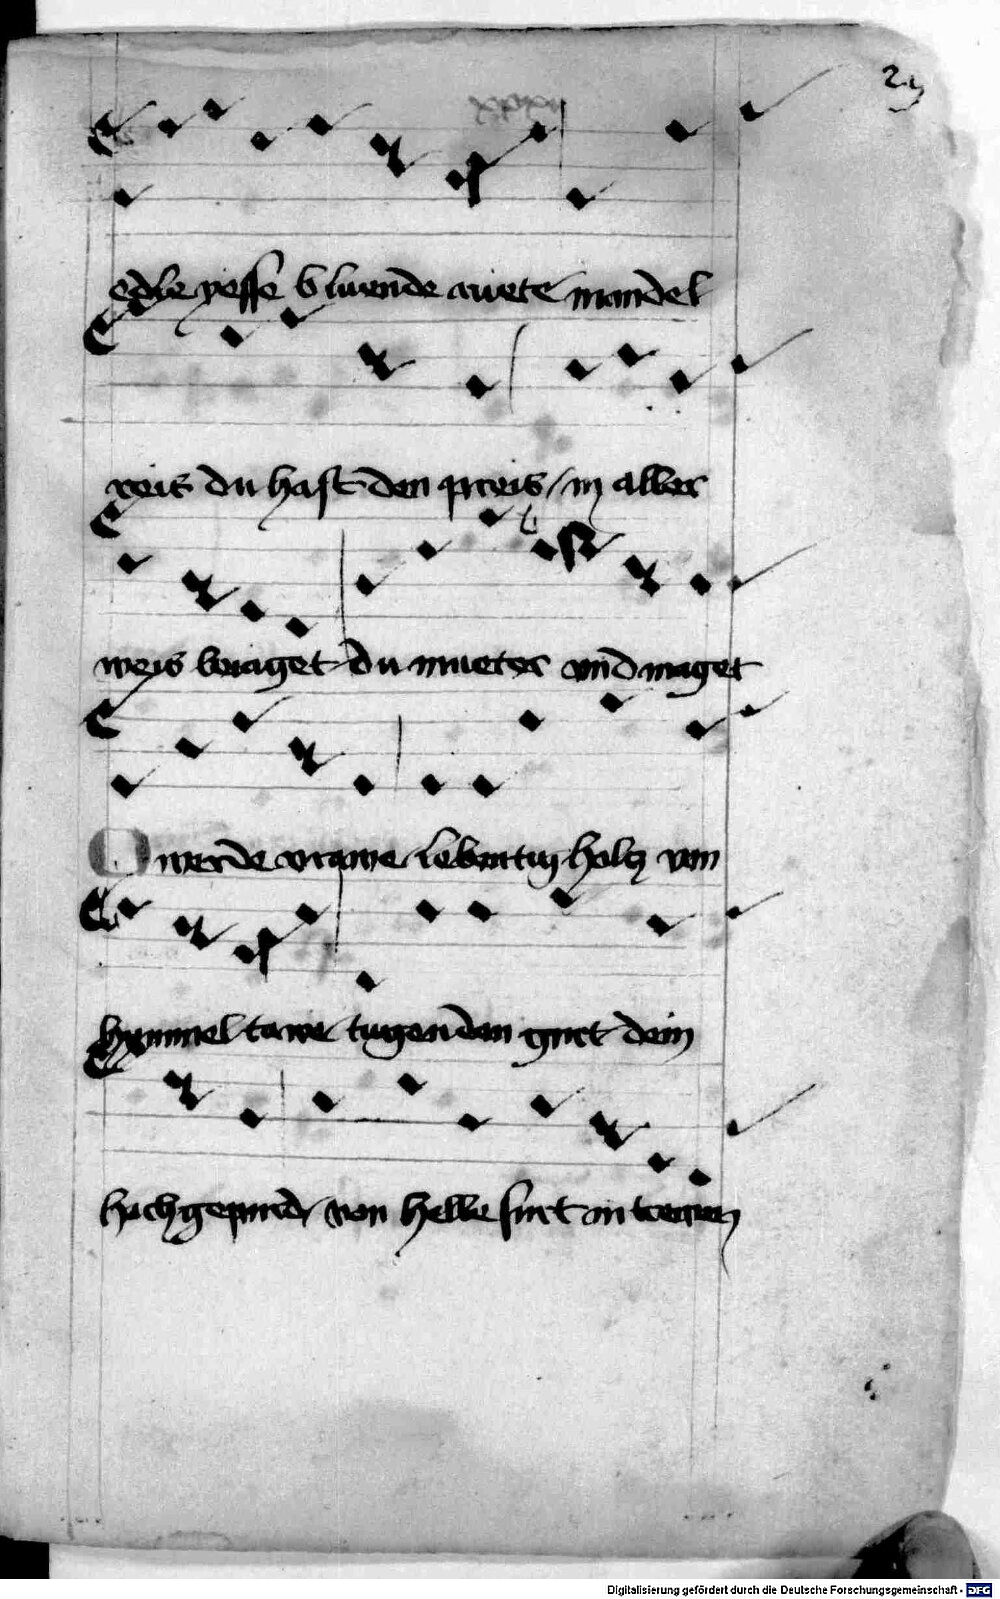 edle yesse bluende ruete mandel
reis du hast den preis / in aller
weis betaget du mueter vnd maget
O werde vrawe lebentig holtz von
hymmel tawe tugenden gurt dein
hochgepurd von helle furt an
Digitalisierung gefördert durch die Deutsche Forschungsgemeinschaft - DFG